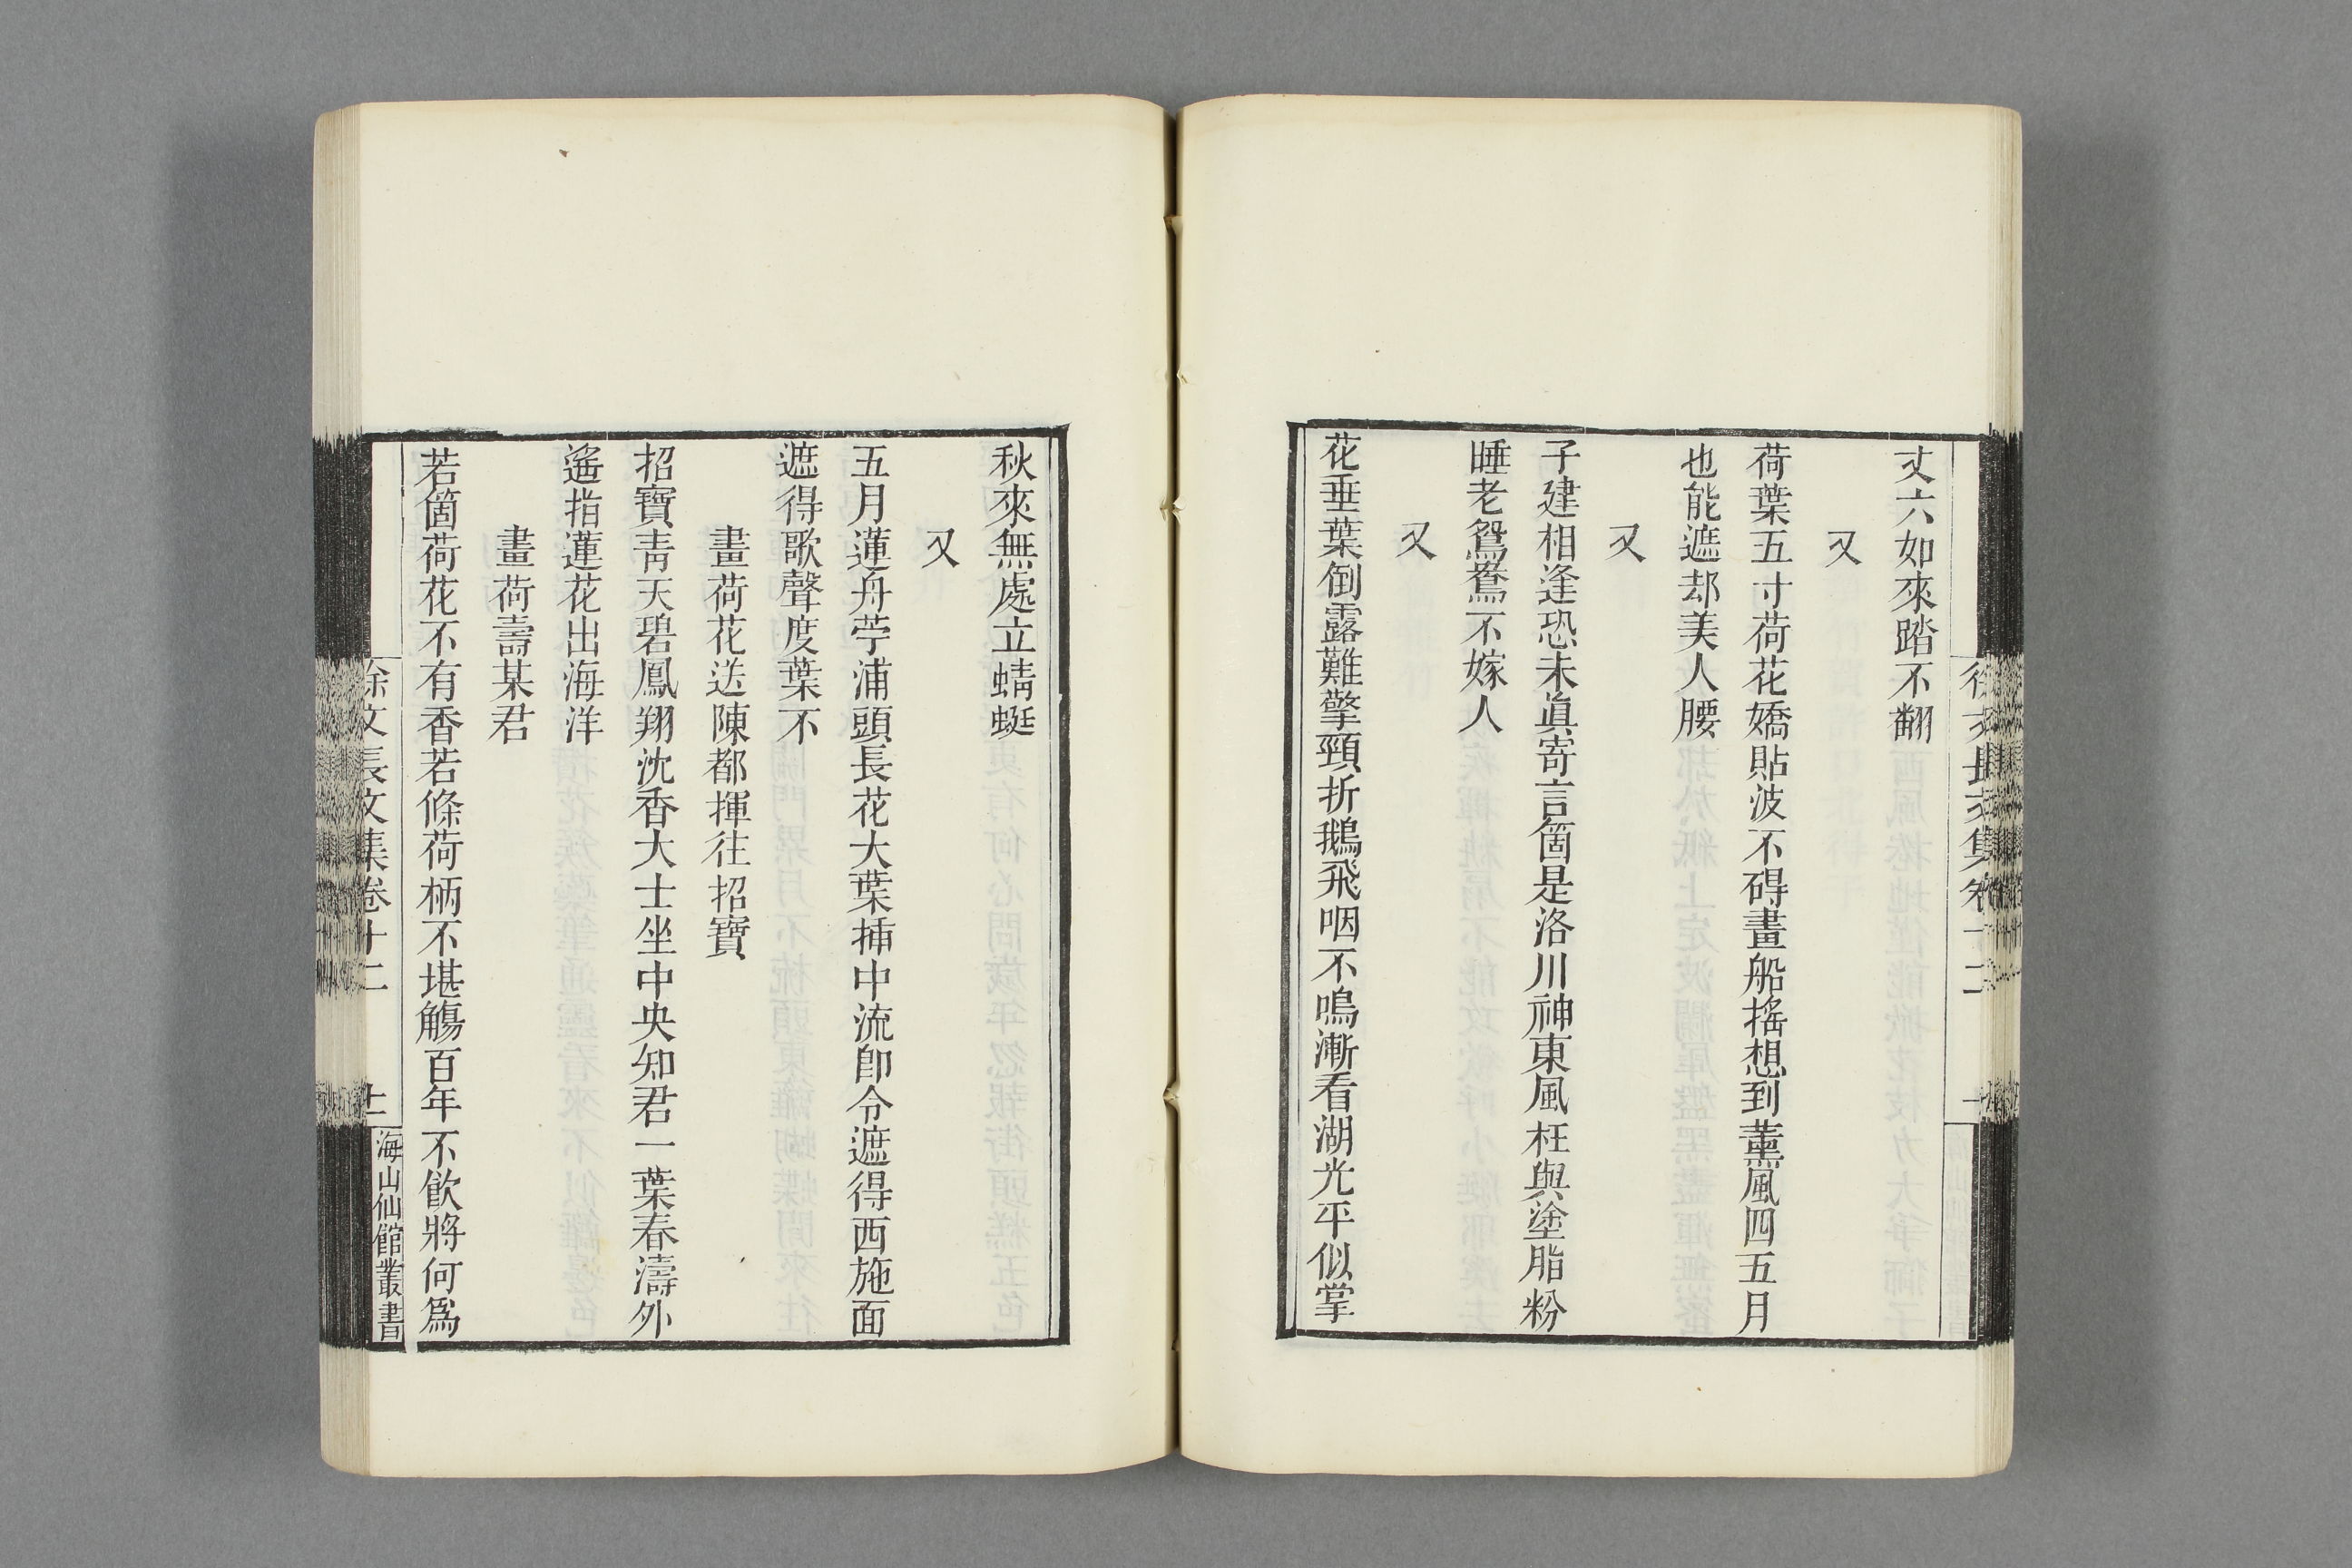 丈六如來踏不翻
又
荷葉五寸荷花嬌貼波不碍畫船搖想到薰風四五月
也能遮却美人腰
又
子建相逢恐未眞寄言箇是洛川神東風枉與塗脂粉
睡老鴛鴦不嫁人
又
花垂葉倒露難擎頸折鵝飛咽不鳴漸看湖光平似掌
秋來無處立蜻蜓
又
五月蓮舟苧浦頭長花大葉揷中流卽令遮得西施面
遮得歌聲度葉不
畫荷花送陳都揮往招寶
招寶靑天碧鳳翔沈香大士坐中央知君一葉春濤外
遙指蓮花出海洋
畫荷壽某君
若箇荷花不有香若條荷柄不堪觴百年不飮將何爲
徐文長文集卷十二
海山仙館叢書